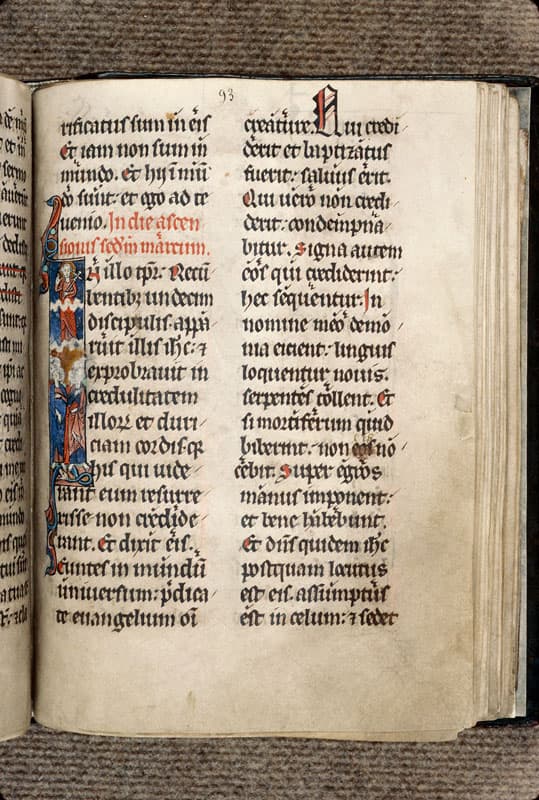 93
rificatus sum in eis
Et iam non sum in
mundo. Et hii in mū
do sunt: et ego ad te
uenio. In die ascen
sionis sedm̄ marcum.
In illo tp̄r. Recū
bentibꝫ undecim
discipulis. appa
ruit illis ihc: ⁊
exprobrauit in
credulitatem
illoꝝ et duri
ciam cordis. qꝛ
his qui uide
rant eum resurre
xisse non credide
rant. Et dixit eis.
Euntes in mundū
uniuersum: p̄dica
te euangelium oī
creature. Qui credi
derit et baptizatus
fuerit: saluus erit.
Qui uero non credi
derit: condempna
bitur. Signa autem
eos qui crediderint:
hec sequentur. In
nomine meo demo
nia eicient: linguis
loquentur nouis.
serpentes tollent. Et
si mortiferum quid
biberint: non eos no
cebit. Super egros
manus imponent:
et bene habebunt.
Et dn̄s quidem ihc
postquam locutus
est eis. assumptus
est in celum: ⁊ sedet